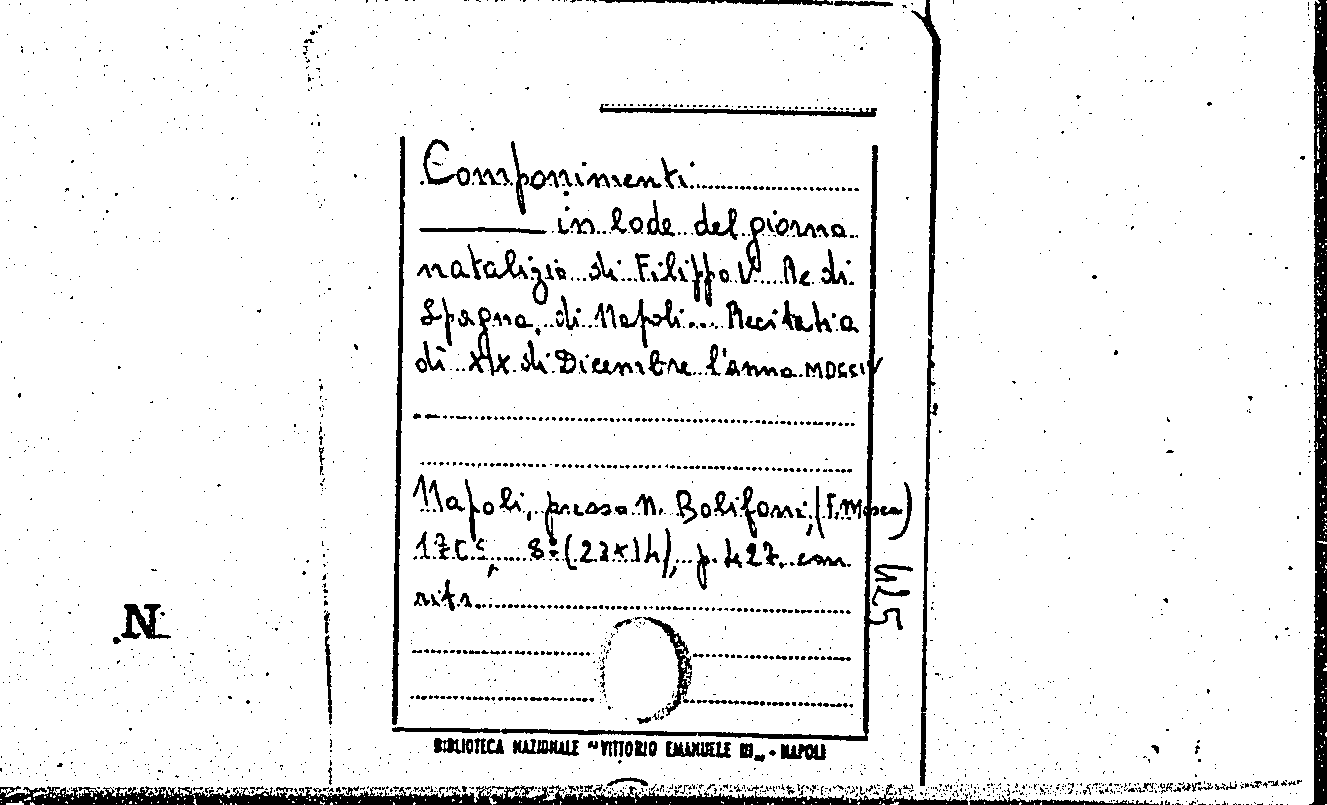 Componimenti
in lode del giorno
natalizio di Filippo V Re di
Spagna, di Napoli... Recitati a
dì XIX di Dicembre l'anno MDCCIV
Napoli, presso N. Bolifoni, (F. Mosca)
1705, 8° (23x14), p. 427 con
ritr.
425
N
BIBLIOTECA NAZIONALE "VITTORIO EMANUELE III" - NAPOLI